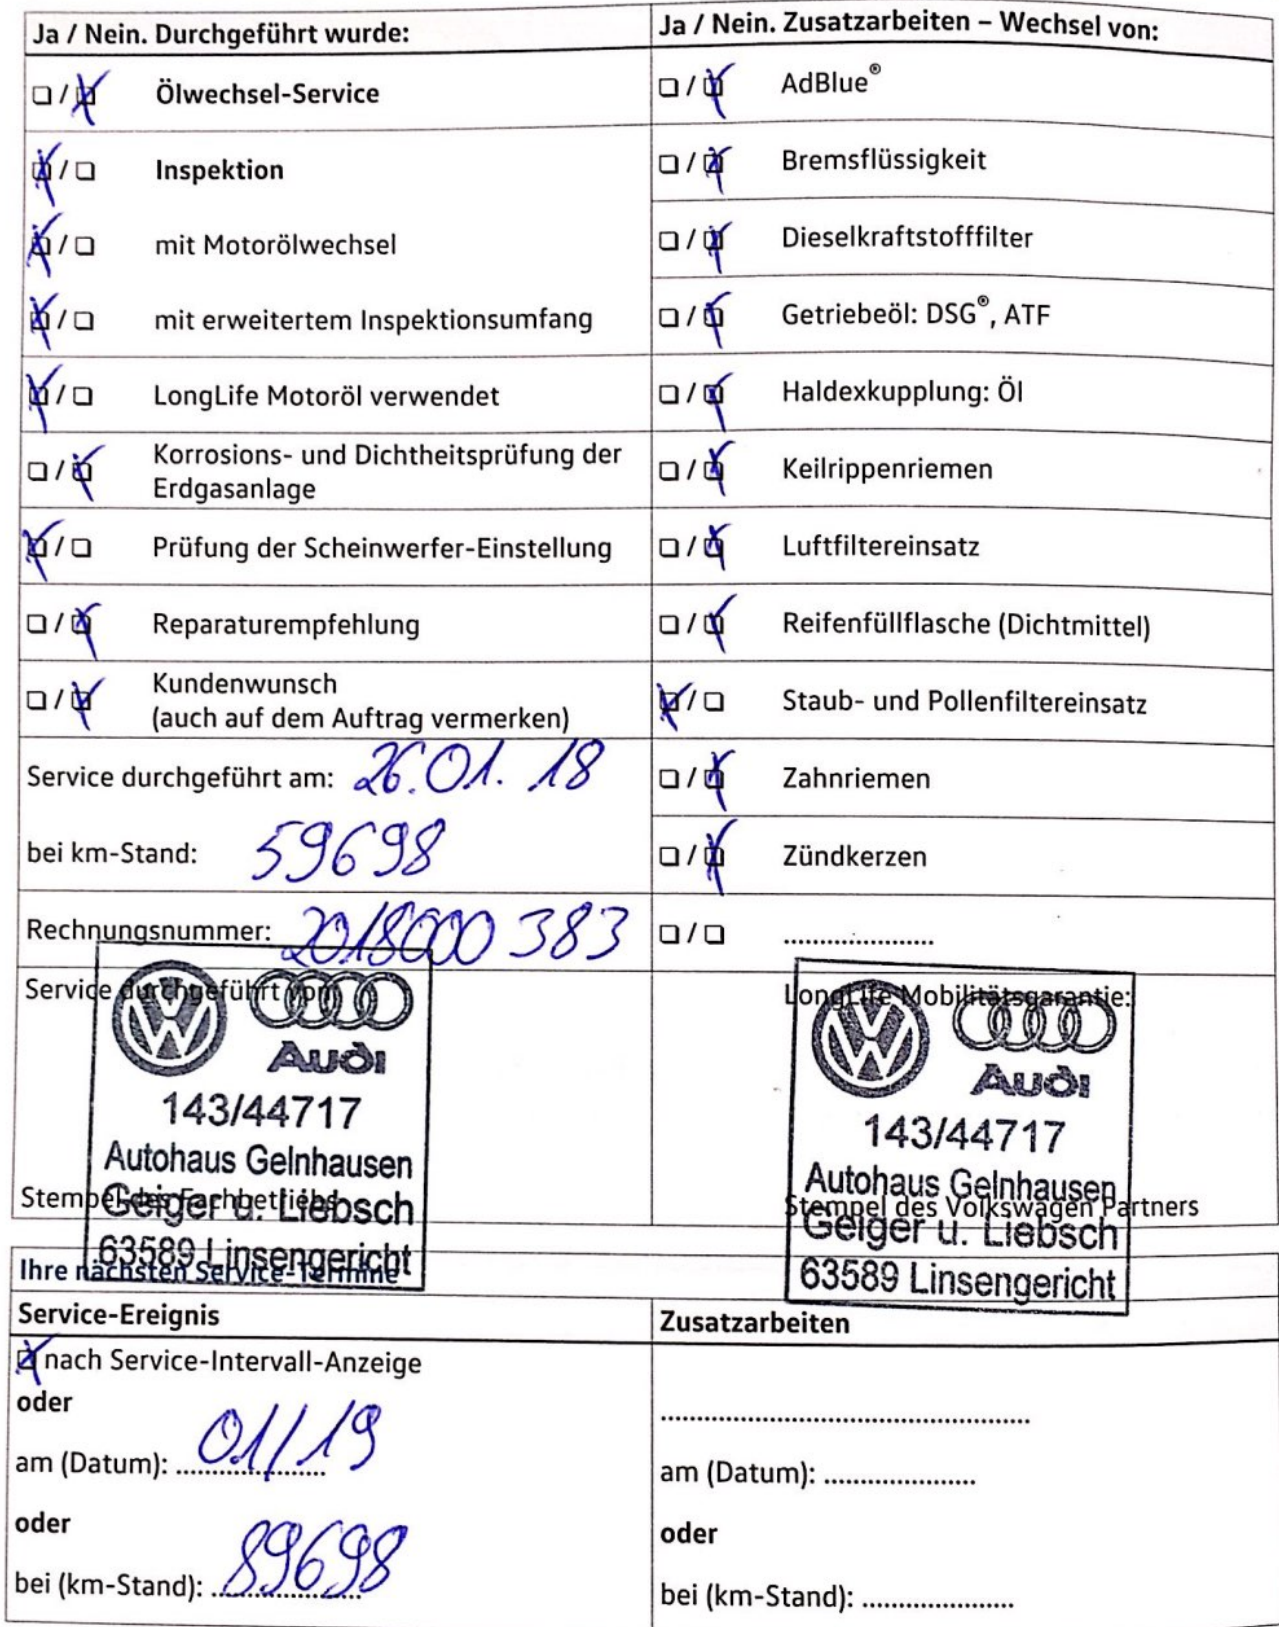 Ja / Nein. Durchgeführt wurde:
☐ / ☒ Ölwechsel-Service
☒ / ☐ Inspektion
☒ / ☐ mit Motorölwechsel
☒ / ☐ mit erweitertem Inspektionsumfang
☒ / ☐ LongLife Motoröl verwendet
☐ / ☒ Korrosions- und Dichtheitsprüfung der
Erdgasanlage
☒ / ☐ Prüfung der Scheinwerfer-Einstellung
☐ / ☒ Reparaturempfehlung
☐ / ☒ Kundenwunsch
(auch auf dem Auftrag vermerken)
Service durchgeführt am: 26.01.18
bei km-Stand: 59698
Rechnungsnummer: 2018000383
Service durchgeführt von
VW Audi
143/44717
Autohaus Gelnhausen
Geiger u. Liebsch
63589 Linsengericht
Stempel des Fachbetriebs
Ja / Nein. Zusatzarbeiten – Wechsel von:
☐ / ☒ AdBlue®
☐ / ☒ Bremsflüssigkeit
☐ / ☒ Dieselkraftstofffilter
☐ / ☒ Getriebeöl: DSG®, ATF
☐ / ☒ Haldexkupplung: Öl
☐ / ☒ Keilrippenriemen
☐ / ☒ Luftfiltereinsatz
☐ / ☒ Reifenfüllflasche (Dichtmittel)
☒ / ☐ Staub- und Pollenfiltereinsatz
☐ / ☒ Zahnriemen
☐ / ☒ Zündkerzen
☐ / ☐ ......................
LongLife Mobilitätsgarantie:
VW Audi
143/44717
Autohaus Gelnhausen
Geiger u. Liebsch
63589 Linsengericht
Stempel des Volkswagen Partners
Ihre nächsten Service-Termine
Service-Ereignis
☒ nach Service-Intervall-Anzeige
oder
am (Datum): 01/19
oder
bei (km-Stand): 89698
Zusatzarbeiten
......................................................
am (Datum): ......................
oder
bei (km-Stand): ......................